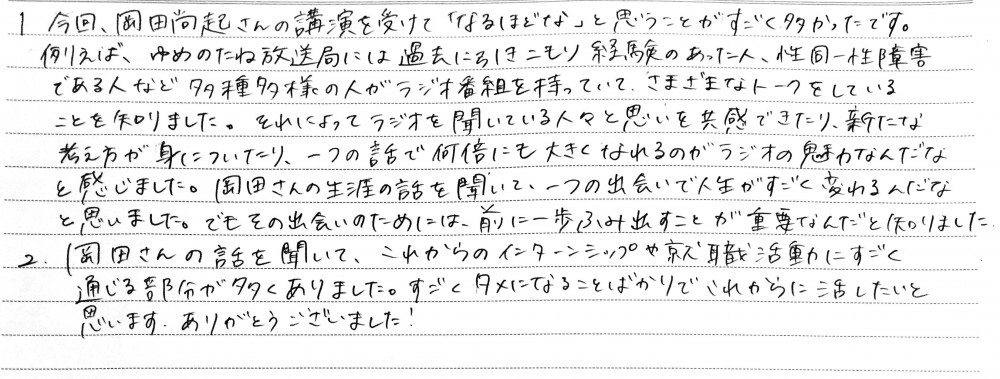 1 今回、岡田尚起さんの講演を受けて「なるほどな」と思うことがすごく多かったです。
例えば、ゆめのたね放送局には過去にひきこもり経験のあった人、性同一性障害
である人など多種多様の人がラジオ番組を持っていて、さまざまなトークをしている
ことを知りました。それによってラジオを聞いている人々と思いを共感できたり、新たな
考え方が身についたり、一つの話で何倍にも大きくなれるのがラジオの魅力なんだな
と感じました。岡田さんの生涯の話を聞いて、一つの出会いで人生がすごく変わるんだな
と思いました。でもその出会いのためには、前に一歩ふみ出すことが重要なんだと知りました。
2. 岡田さんの話を聞いて、これからのインターンシップや就職活動にすごく
通じる部分が多くありました。すごくタメになることばかりでこれからに活したいと
思います。ありがとうございました!